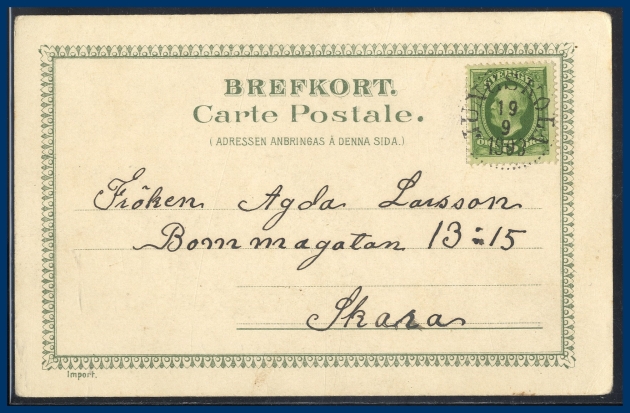 BREFKORT.
Carte Postale.
(ADRESSEN ANBRINGAS Å DENNA SIDA.)
19
9
1902
Fröken Agda Larsson
Bommagatan 13 : 15
Skara
Import.